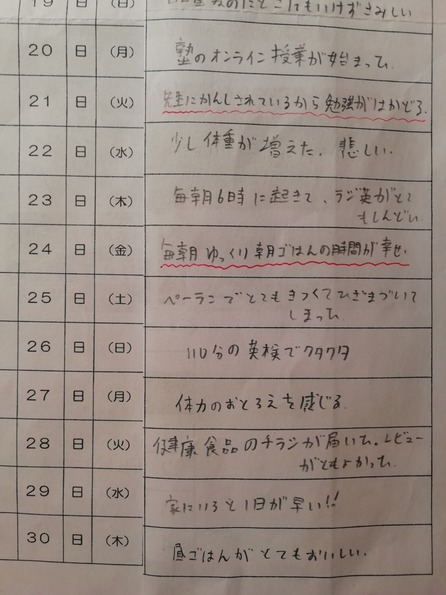 19 日 (日)
20 日 (月) 塾のオンライン授業が始まった。
21 日 (火) 先生にかんしされているから勉強がはかどる。
22 日 (水) 少し体重が増えた。悲しい。
23 日 (木) 毎朝6時に起きて、ラジ英がとて
もしんどい
24 日 (金) 毎朝ゆっくり朝ごはんの時間が幸せ。
25 日 (土) ペーランでとてもきつくてひざまづいて
しまった
26 日 (日) 110分の英検でクタクタ
27 日 (月) 体力のおとろえを感じる。
28 日 (火) 健康食品のチラシが届いた。レビュー
がともよかった。
29 日 (水) 家にいると1日が早い!!
30 日 (木) 昼ごはんがとてもおいしい。